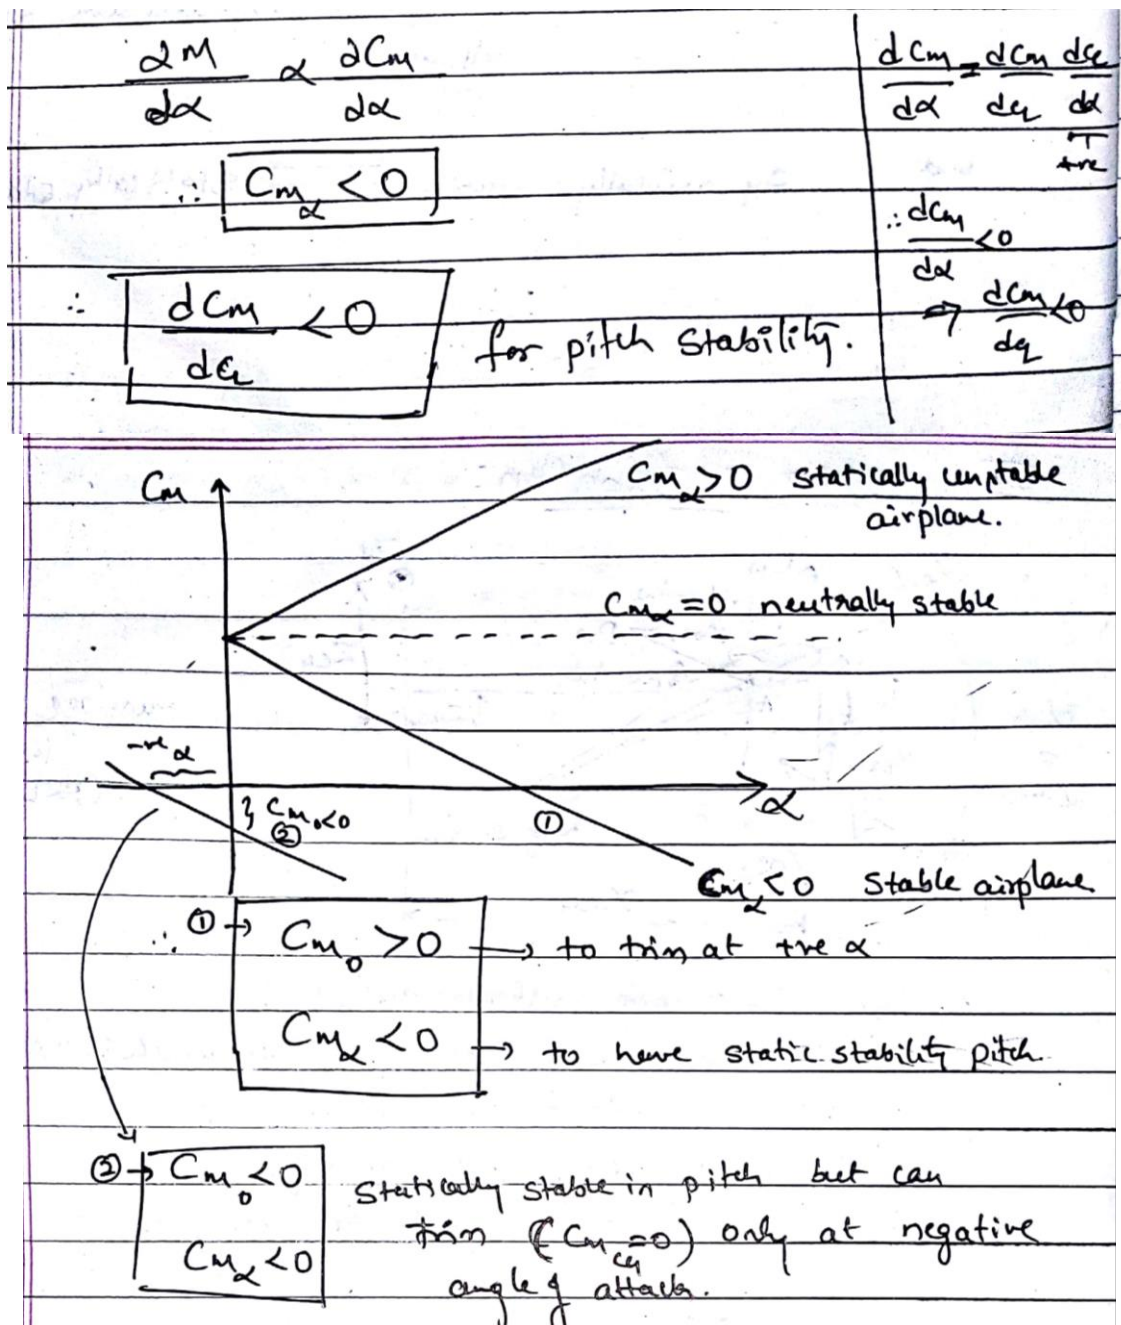 ∂M/∂α ∝ ∂Cm/∂α
∴ Cmα < 0
∴ dCm/dCL < 0 for pitch stability.
dCm/dα = dCm/dCL dCL/dα
+ve
∴ dCm/dα < 0
⇒ dCm/dCL < 0
Cm
Cmα > 0 statically unstable
airplane.
Cmα = 0 neutrally stable
-ve α
α
} Cm0 < 0
②
①
Cmα < 0 Stable airplane
∴ ① → Cm0 > 0 → to trim at +ve α
Cmα < 0 → to have static stability pitch.
② → Cm0 < 0 Statically stable in pitch but can
trim (Cmcg = 0) only at negative
Cmα < 0 angle of attack.